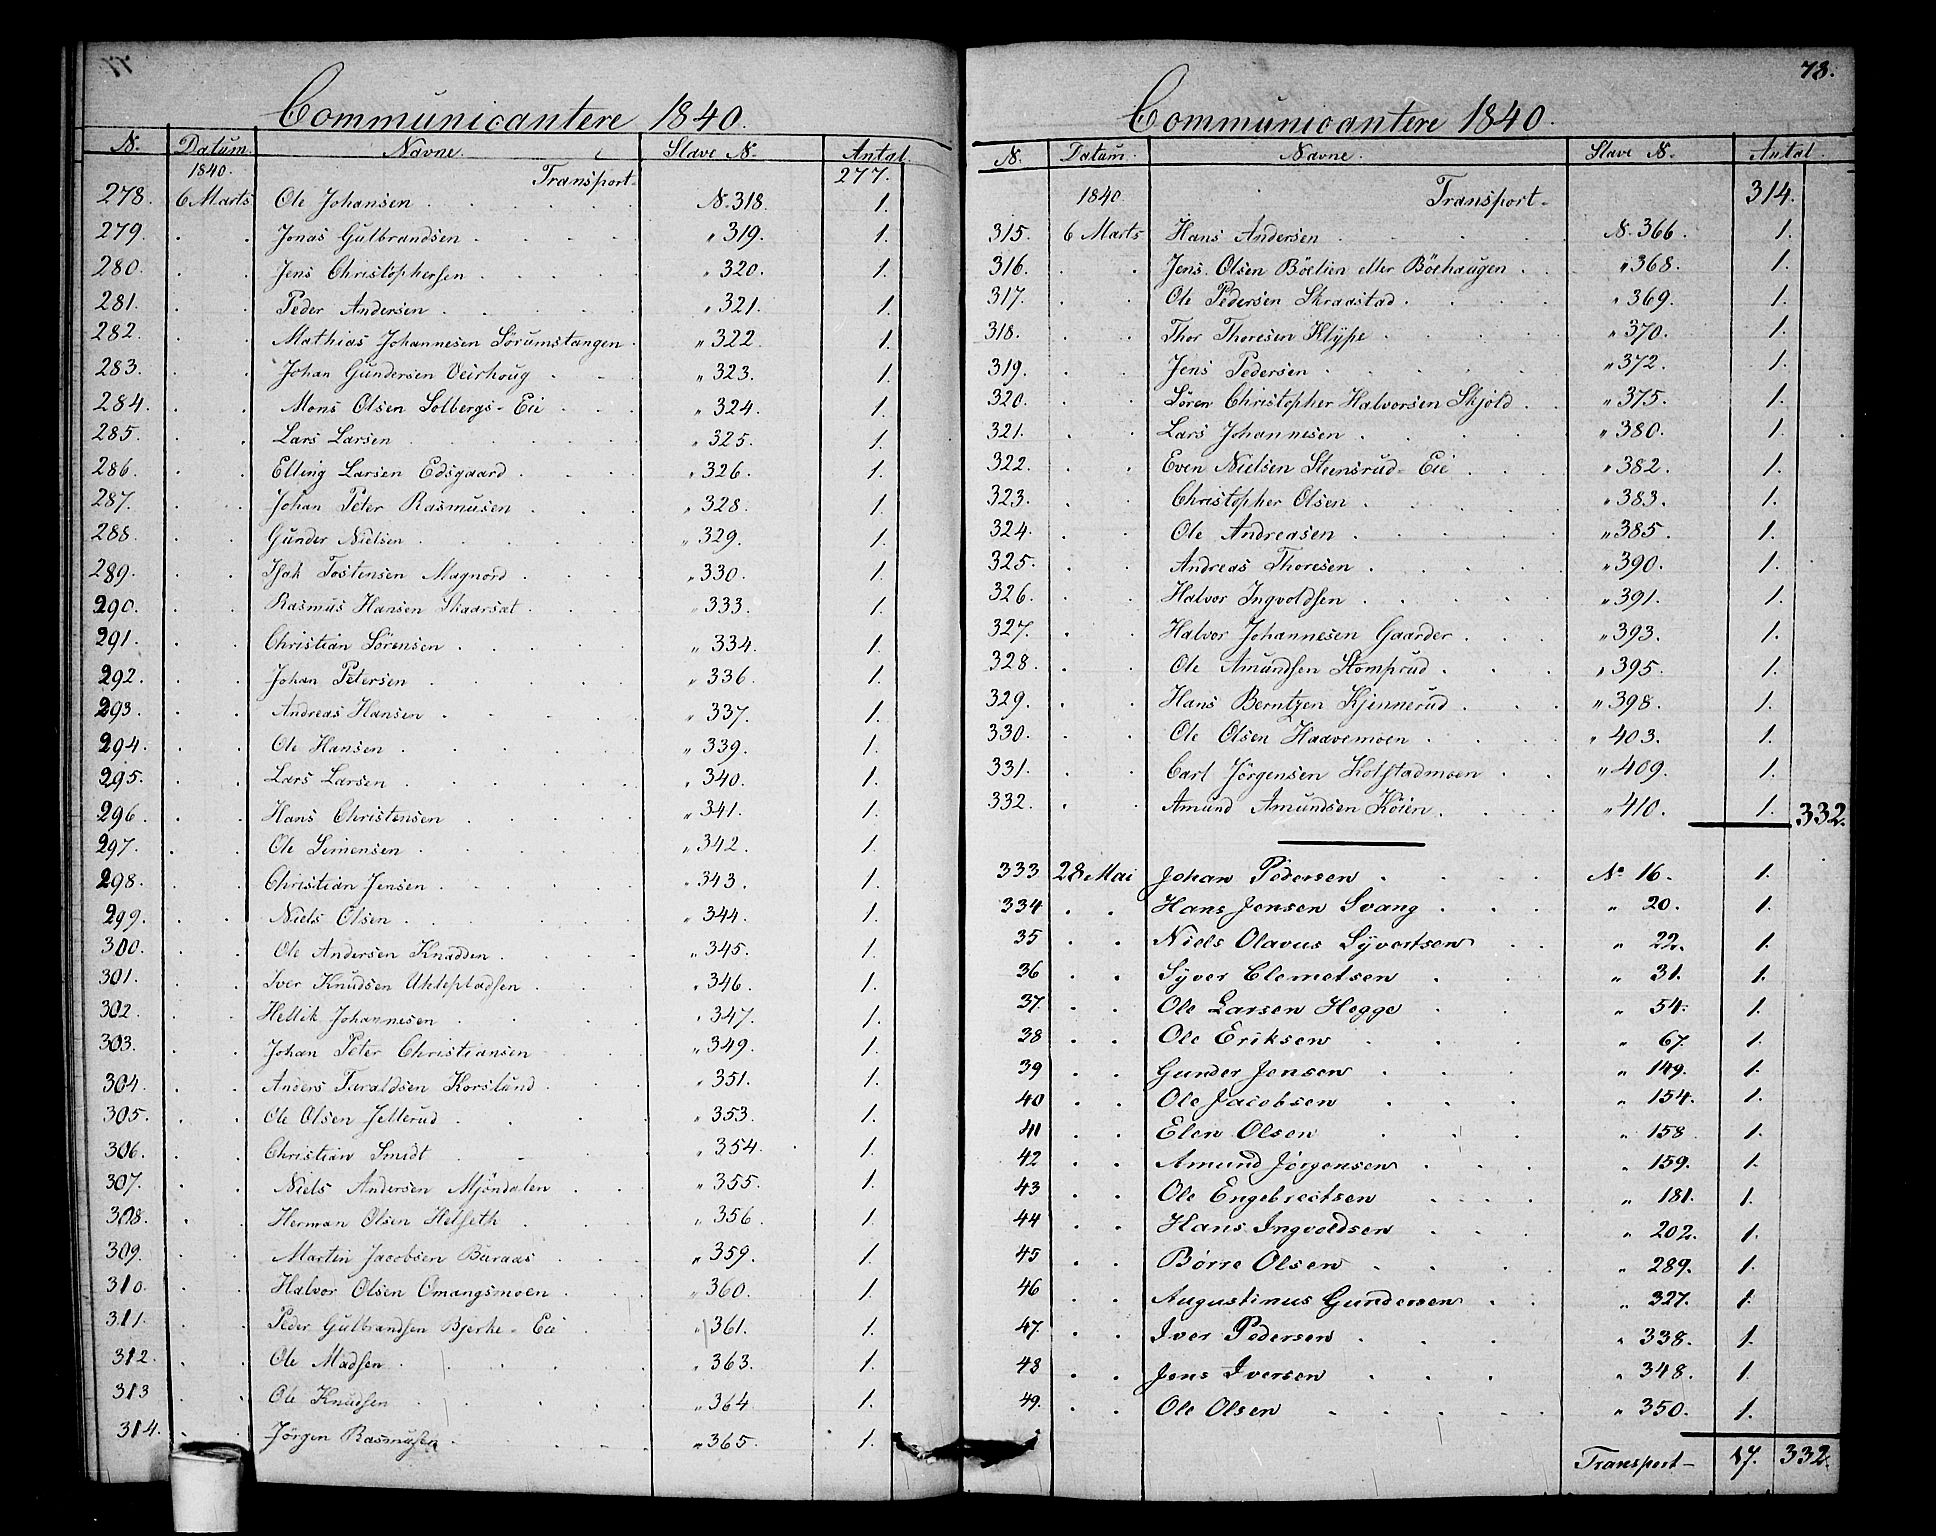 Communicantere 1840.
N. Datum. Navne. Slave N. Antal
1840. Transport 277.
278. 6 Marts Ole Johansen N. 318. 1.
279. Jonas Gulbrandsen " 319. 1.
280. Jens Christophersen " 320. 1.
281. Peder Andersen " 321. 1.
282. Mathias Johannesen Sörumstangen " 322. 1.
283. Johan Gundersen Veirhoug " 323. 1.
284. Mons Olsen Solbergs-Eie " 324. 1.
285. Lars Larsen " 325. 1.
286. Elling Larsen Edsgaard " 326. 1.
287. Johan Peter Rasmusen " 328. 1.
288. Gunder Nielsen " 329. 1.
289. Isak Tostensen Magnord " 330. 1.
290. Rasmus Hansen Skaarsæt " 333. 1.
291. Christian Sörensen " 334. 1.
292. Johan Petersen " 336. 1.
293. Andreas Hansen " 337. 1.
294. Ole Hansen " 339. 1.
295. Lars Larsen " 340. 1.
296. Hans Christensen " 341. 1.
297. Ole Simensen " 342. 1.
298. Christian Jensen " 343. 1.
299. Niels Olsen " 344. 1.
300. Ole Andersen Knadden " 345. 1.
301. Iver Knudsen " 346. 1.
302. Hellik Johannesen " 347. 1.
303. Johan Peter Christiansen " 349. 1.
304. Anders Taraldsen Korslund " 351. 1.
305. Ole Olsen Jellerud " 353. 1.
306. Christian Smidt " 354. 1.
307. Niels Andersen Mjöndalen " 355. 1.
308. Herman Olsen Helseth " 356. 1.
309. Martin Jacobsen Buraas " 359. 1.
310. Halvor Olsen Omangsmoen " 360. 1.
311. Peder Gulbrandsen Bjerke-Eie " 361. 1.
312. Ole Madsen " 363. 1.
313 Ole Knudsen " 364 1.
314. Jörgen Rasmusen " 365. 1.
78.
Communicantere 1840.
N. Datum. Navne. Slave N. Antal.
1840. Transport 314.
315. 6 Marts Hans Andersen N. 366. 1.
316. Jens Olsen Böelien eller Böehaugen " 368. 1.
317. Ole Pedersen Skraastad " 369. 1.
318. Thor Thoresen Klÿpe " 370. 1.
319. Jens Pedersen " 372. 1.
320. Sören Christopher Halvorsen Skjold " 375. 1.
321. Lars Johannesen " 380. 1.
322. Even Nielsen Steensrud-Eie " 382. 1.
323. Christopher Olsen " 383. 1.
324. Ole Andreasen " 385. 1.
325. Andreas Thoresen " 390. 1.
326. Halvor Ingvoldsen " 391. 1.
327. Halvor Johannesen Gaarder " 393. 1.
328. Ole Amundsen Stomprud " 395. 1.
329. Hans Berntzen Kjennerud " 398. 1.
330. Ole Olsen Haavemoen " 403. 1.
331. Carl Jörgensen Kolstadmoen " 409. 1.
332. Amund Amundsen Köien " 410. 1. 332.
333 28 Mai Johan Pedersen No 16. 1.
334 Hans Jensen Svang " 20. 1.
35 Niels Olavus Syvertsen " 22. 1.
36 Syver Clemetsen " 31. 1.
37. Ole Larsen Hegge " 54. 1.
38 Ole Eriksen " 67. 1.
39 Gunder Jensen " 149. 1.
40 Ole Jacobsen " 154. 1.
41 Elen Olsen " 158 1.
42 Amund Jørgensen " 159. 1.
43 Ole Engebrectsen " 181. 1.
44 Hans Ingvoldsen " 202. 1.
45 Børre Olsen " 289. 1.
46 Augustinus Gundersen " 327. 1.
47. Iver Pedersen " 338. 1.
48 Jens Iversen " 348. 1.
49. Ole Olsen " 350. 1.
Transport 17. 332.